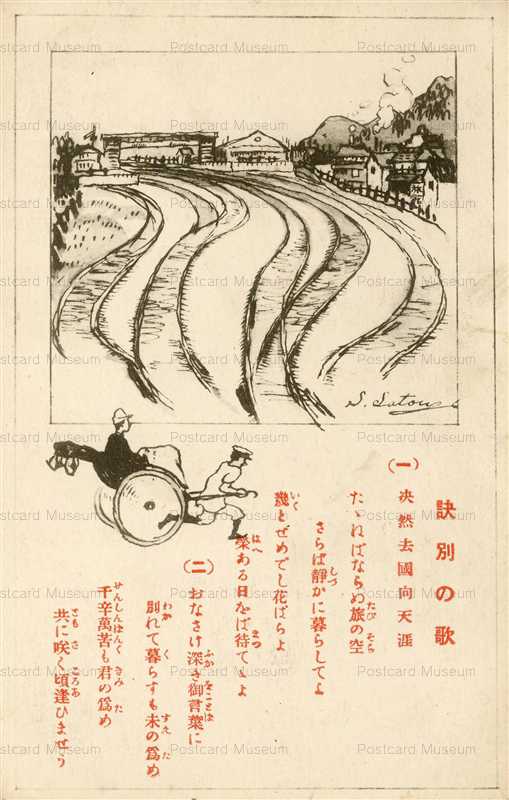 S. Satou
訣別の歌
(一)
决然去國向天涯
たゝねばならぬ旅の空
さらば靜かに暮らしてよ
幾とせめでし花ばらよ
榮ある日をば待てよ
(二)
おなさけ深き御言葉に
別れて暮らすも末の爲め
千辛萬苦も君の爲め
共に咲く頃逢ひませう
Postcard Museum